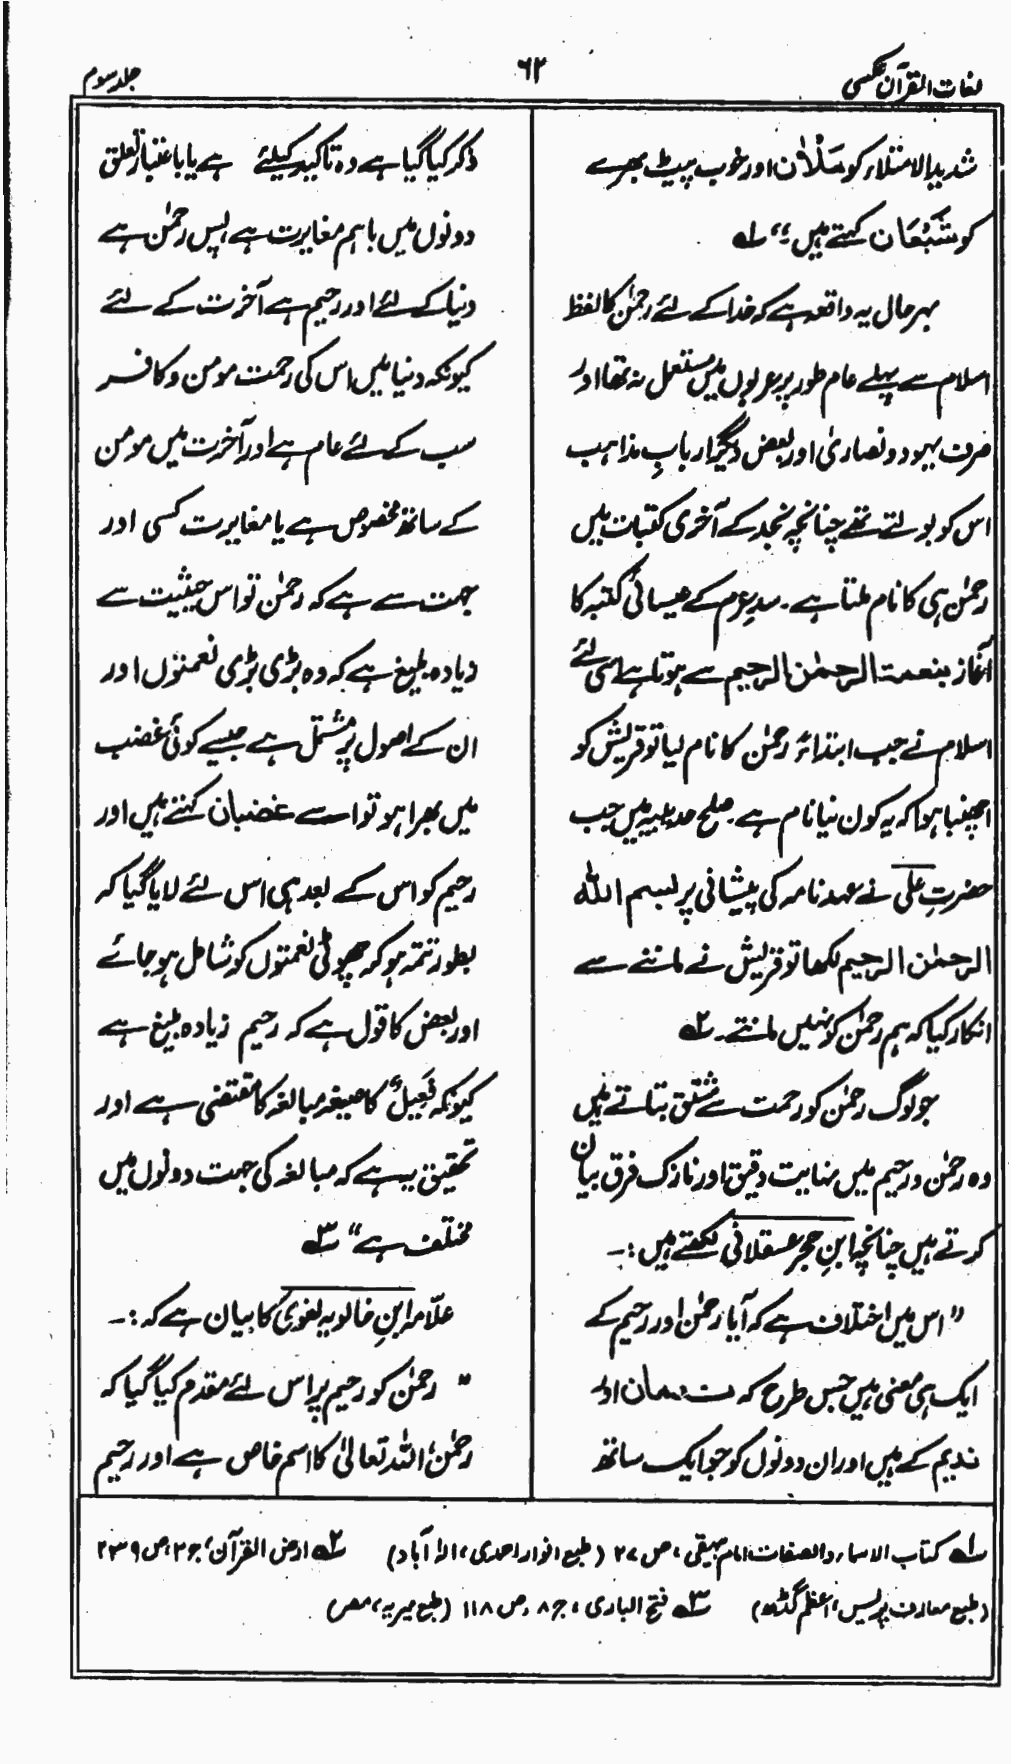 لغات القرآن عکسی
۶۲
جلد سوم
شدید الامتلاء کو مَلْأٰن اور خوب پیٹ بھرے
کو شَبْعَان کہتے ہیں۔“ ۱؎
بہر حال یہ واقعہ ہے کہ خدا کے لئے رحمٰن کا لفظ
اسلام سے پہلے عام طور پر عربوں میں مستعمل نہ تھا اور
صرف یہود و نصاریٰ اور بعض دیگر اربابِ مذاہب
اس کو بولتے تھے چنانچہ نجد کے آخری کتبات میں
رحمٰن ہی کا نام ملتا ہے۔ سدِ عرم کے عیسائی کتبہ کا
آغاز بنعمۃ الرحمٰن الرحیم سے ہوتا ہے اسی لئے
اسلام نے جب ابتداءً رحمٰن کا نام لیا تو قریش کو
اچنبا ہوا کہ یہ کون نیا نام ہے۔ صلح حدیبیہ میں جب
حضرتِ علی نے عہد نامہ کی پیشانی پر بسم اللہ
الرحمٰن الرحیم لکھا تو قریش نے ماننے سے
انکار کیا کہ ہم رحمٰن کو نہیں مانتے۔ ۲؎
جو لوگ رحمٰن کو رحمت سے مشتق بتاتے ہیں
وہ رحمٰن و رحیم میں نہایت دقیق اور نازک فرق بیان
کرتے ہیں چنانچہ ابنِ حجر عسقلانی لکھتے ہیں :۔
” اس میں اختلاف ہے کہ آیا رحمٰن اور رحیم کے
ایک ہی معنی ہیں جس طرح کہ ندمان اور
ندیم کے ہیں اور ان دونوں کو جو ایک ساتھ
ذکر کیا گیا ہے وہ تاکید کیلئے ہے یا باعتبار تعلق
دونوں میں باہم مغایرت ہے پس رحمٰن ہے
دنیا کے لئے اور رحیم ہے آخرت کے لئے
کیونکہ دنیا میں اس کی رحمت مومن و کافر
سب کے لئے عام ہے اور آخرت میں مومن
کے ساتھ مخصوص ہے یا مغایرت کسی اور
جہت سے ہے کہ رحمٰن تو اس حیثیت سے
زیادہ بلیغ ہے کہ وہ بڑی بڑی نعمتوں اور
ان کے اصول پر مشتمل ہے جیسے کوئی غضب
میں بھرا ہو تو اسے غضبان کہتے ہیں اور
رحیم کو اس کے بعد ہی اس لئے لایا گیا کہ
بطور تتمہ ہو کر چھوٹی نعمتوں کو شامل ہو جائے
اور بعض کا قول ہے کہ رحیم زیادہ بلیغ ہے
کیونکہ فَعِیلٌ کا صیغہ مبالغہ کا مقتضی ہے اور
تحقیق یہ ہے کہ مبالغہ کی جہت دونوں میں
مختلف ہے“ ۳؎
علّامہ ابنِ خالویہ لغوی کا بیان ہے کہ :۔
” رحمٰن کو رحیم پر اس لئے مقدم کیا گیا کہ
رحمٰن اللہ تعالیٰ کا اسم خاص ہے اور رحیم
۱؎ کتاب الاسماء والصفات امام بیہقی، ص ۲۷ (طبع انوار احمدی، الہ آباد) ۲؎ ارض القرآن، ج ۲، ص ۲۳۹
(طبع معارف پریس، اعظم گڈھ) ۳؎ فتح الباری، ج ۸، ص ۱۱۸ (طبع میریہ، مصر)